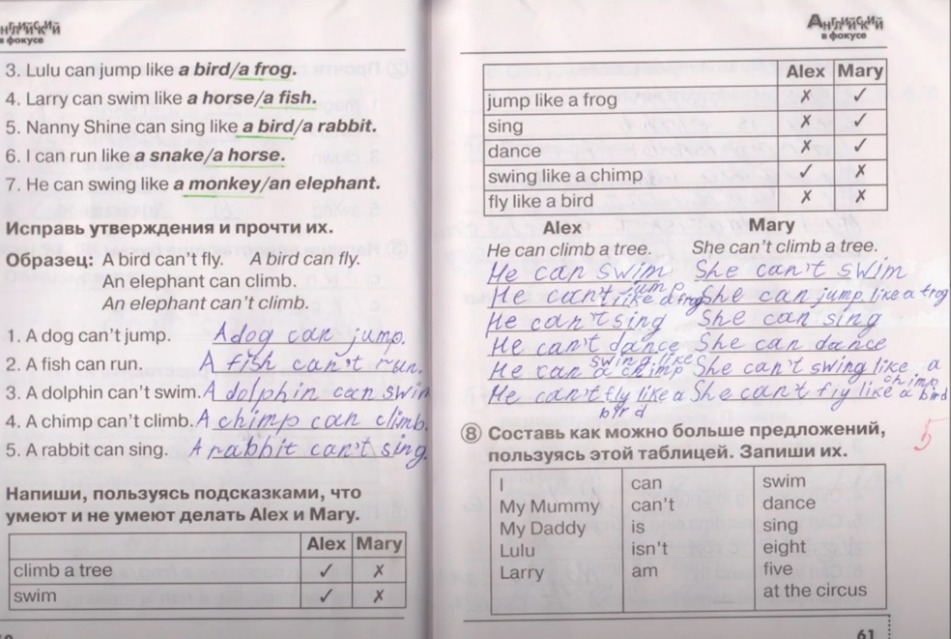 Английский
в фокусе
3. Lulu can jump like a bird/a frog.
4. Larry can swim like a horse/a fish.
5. Nanny Shine can sing like a bird/a rabbit.
6. I can run like a snake/a horse.
7. He can swing like a monkey/an elephant.
Исправь утверждения и прочти их.
Образец: A bird can't fly. A bird can fly.
An elephant can climb.
An elephant can't climb.
1. A dog can't jump. A dog can jump.
2. A fish can run. A fish can't run.
3. A dolphin can't swim. A dolphin can swim
4. A chimp can't climb. A chimp can climb.
5. A rabbit can sing. A rabbit can't sing.
Напиши, пользуясь подсказками, что
умеют и не умеют делать Alex и Mary.
Alex Mary
climb a tree ✓ ✗
swim ✓ ✗
Английский
в фокусе
Alex Mary
jump like a frog ✗ ✓
sing ✗ ✓
dance ✗ ✓
swing like a chimp ✓ ✗
fly like a bird ✗ ✗
Alex Mary
He can climb a tree. She can't climb a tree.
He can swim She can't swim
He can't jump like a frog She can jump like a frog
He can't sing She can sing
He can't dance She can dance
He can swing like a chimp She can't swing like a chimp
He can't fly like a bird She can't fly like a bird
5
8 Составь как можно больше предложений,
пользуясь этой таблицей. Запиши их.
I can swim
My Mummy can't dance
My Daddy is sing
Lulu isn't eight
Larry am five
at the circus
61